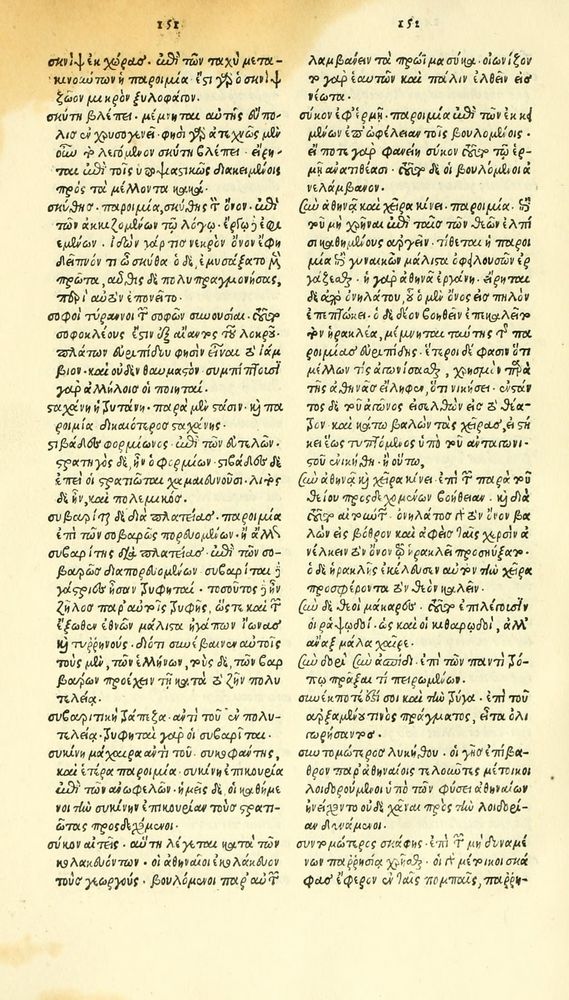 151
σκνὶψ ἐκ χώρας. ἐπὶ τῶν ταχὺ μετα-
κινούντων ἡ παροιμία. ἔστι γὰρ ὁ σκνὶψ
ζῶον μικρὸν ξυλοφάγον.
σκύτη βλέπει. μέμνηται αὐτῆς εὔπο-
λις ἐν χρυσογένει. φησὶ γὰρ ἀτεχνῶς μὲν
οὖν τὸ λεγόμενον σκύτη βλέπει. εἴρη-
ται ἐπὶ τοῖς ὑποψιαστικῶς διακειμένοις
πρὸς τὰ μέλλοντα κακά.
σκύθης. παροιμία, σκύθης τὸν ὄνον. ἐπὶ
τῶν ἀκκιζομένων τῷ λόγῳ. ἔργῳ ἐφι
εμένων. ἰδὼν γάρ τις νεκρὸν ὄνον ἔφη
δεῖπνόν τι ὦ σκύθα. ὁ δὲ, ἐμυσάξατο μὲν
πρῶτα, αὖθις δὲ πολυπραγμονήσας,
περὶ αὐτὸν ἐπονεῖτο.
σοφοὶ τύραννοι τῶν σοφῶν συνουσίαι.
σοφοκλέους ἐστὶν ἐξ αἴαντος τοῦ λοκροῦ.
πλάτων εὐριπίδου φησὶν εἶναι τὸ ἰάμ
βιον. καὶ οὐδὲν θαυμαστὸν. συμπίπτουσι
γὰρ ἀλλήλοις οἱ ποιηταί.
παρὰ μὲν στάσιν. καὶ πα
ροιμία δικαιότερος σταχάνης.
στιβάδος φορμίωνος. ἐπὶ τῶν εὐτελῶν.
στρατηγὸς δὲ ἦν ὁ φορμίων. στιβάδος δὲ
ἐπεὶ οἱ στρατιῶται χαμαιευνοῦσι. λιτὸς
δὲ ἦν, καὶ πολεμικός.
συβαρίτης διὰ πλατείας. παροιμία
ἐπὶ τῶν σοβαρῶς πορευομένων. ἢ ἄλλως
συβαρίτης διὰ πλατείας. ἐπὶ τῶν σο-
βαρῶς διαπορευομένων. συβαρῖται
γάστριδες ἦσαν τρυφηταί. τοσοῦτος ἦν
ζῆλος παρ' αὐτοῖς τρυφῆς, ὥστε καὶ τῶν
ἔξωθεν ἐθνῶν μάλιστα ἠγάπων ἴωνας
καὶ τυρρηνούς. διότι συνέβαινεν αὐτοῖς
τοὺς μὲν, τῶν ἑλλήνων, τοὺς δὲ, τῶν βαρ
βάρων προέχειν τῇ κατὰ τὸ ζῆν πολυ
τελείᾳ.
συβαριτικὴ τράπεζα. ἀντὶ τοῦ ἐν πολυ-
τελείᾳ. τρυφηταὶ γὰρ οἱ συβαρῖται.
συκίνη μάχαιρα. ἀντὶ τοῦ. συκοφάντης,
καὶ ἑτέρα παροιμία. συκίνη ἐπικουρία
ἐπὶ τῶν ἀνωφελῶν. ἡμεῖς δὲ οἱ καθήμε
νοι τὴν συκίνην ἐπικουρίαν τοὺς στρατι-
ώτας προσδεχόμενοι.
σῦκον αἰτεῖς. αὕτη λέγεται κατὰ τῶν
κολακευόντων. οἱ ἀθηναῖοι ἐκολάκευον
τοὺς γεωργοὺς. βουλόμενοι παρ' αὐτῶν
152
λαμβάνειν τὰ πρώϊμα σῦκα. οἰωνίζον
το γὰρ ἑαυτῶν καὶ πάλιν ἐλθεῖν εἰς
νέωτα.
σῦκον ἐφ' ἑρμῇ. παροιμία ἐπὶ τῶν ἐκκει
μένων ἐπ' ὠφελείᾳ τοῖς βουλομένοις.
εἴ ποτε γὰρ φανείη σῦκον τῷ ἑρ-
μῇ ἀνατιθέασι. δὲ οἱ βουλόμενοι ἀ
νελάμβανον.
σὺν ἀθηνᾷ καὶ χεῖρα κίνει. παροιμία.
τοῦ μὴ χρῆναι ἐπὶ ταῖς τῶν θεῶν ἐλπί
σι καθημένους ἀργεῖν. τίθεται ἡ παροι
μία ἐπὶ γυναικῶν μάλιστα ὀφειλουσῶν ἐρ
γάζεσθαι. ἡ γὰρ ἀθηνᾶ ἐργάνη. εἴρηται
δὲ ἀπὸ ὀνηλάτου, οὗ ὁ μὲν ὄνος εἰς πηλὸν
ἐπεπτώκει. ὁ δὲ δέον βοηθεῖν ἐπεκαλεῖ
το ἡρακλέα, μέμνηται ταύτης τῆς πα
ροιμίας εὐριπίδης. ἕτεροι δέ φασιν ὅτι
μέλλων τις ἀγωνίσασθαι, χρησμὸν παρὰ
τῆς ἀθηνᾶς εἴληφεν, ὅτι νικήσει. ἐνστάν
τος δὲ τοῦ ἀγῶνος εἰσελθὼν εἰς τὸ θέα-
τρον καὶ κάτω βαλὼν τὰς χεῖρας, εἱστή
κει ἕως τυπτόμενος ὑπὸ τοῦ ἀνταγωνι-
στοῦ ἐνικήθη. ἢ οὕτω,
σὺν ἀθηνᾷ καὶ χεῖρα κίνει. ἐπὶ τῶν παρὰ τοῦ
θείου προσδεχομένων βοήθειαν. καὶ διὰ
ὀνηλάτος τις τὸν ὄνον βα
λὼν εἰς βόθρον καὶ ἀφεὶς ταῖς χερσὶν ἀ
νέλκειν τὸν ὄνον τῷ ἡρακλεῖ προσηύξατο.
ὁ δὲ ἡρακλῆς ἐκέλευσεν αὐτὸν τὴν χεῖρα
προσφέροντα τὸν θεὸν καλεῖν.
σὺν δὲ θεοὶ μάκαρες. ἐπέλεγον
οἱ ῥαψῳδοὶ. ὡς καὶ οἱ κιθαρῳδοὶ, ἀλλ'
ἄναξ μάλα χαῖρε.
σὺν δορὶ σὺν ἀσπίδι. ἐπὶ τῶν παντὶ τρό-
πῳ πρᾶξαί τι πειρωμένων.
συνεκποτέ' ἐστί σοι καὶ τὴν τρύγα. ἐπὶ τοῦ
ἀρξαμένου τινὸς πράγματος, εἶτα ὀλι
γωρήσαντος.
συντομώτερος ληκύθου. οἱ γῆς ἐπὶ βά-
θρον παρ' ἀθηναίοις τελοῦντες μέτοικοι
λοιδορούμενοι ὑπὸ τῶν φύσει ἀθηναίων
ἠνείχοντο οὐδὲ χᾶναι πρὸς τὴν λοιδορί-
αν δυνάμενοι.
συντομώτερος σκάφης. ἐπὶ τῶν μὴ δυναμέ
νων παρρησίᾳ χρῆσθαι. οἱ γὰρ μέτοικοι σκά
φας ἔφερον ἐν ταῖς πομπαῖς, παρρη-